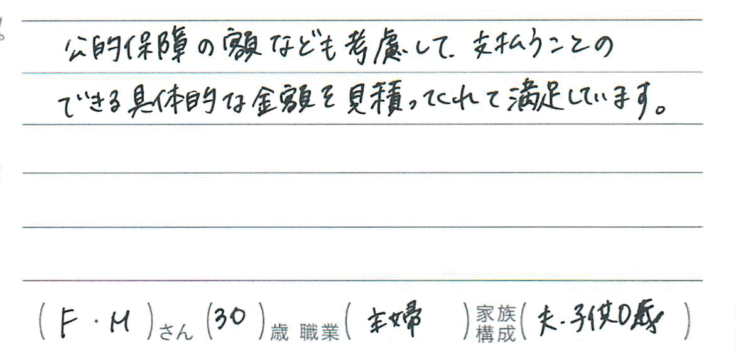 公的保障の額なども考慮して、支払うことの
できる具体的な金額を見積ってくれて満足しています。
(F・M)さん(30)歳 職業(主婦)家族構成(夫・子供0歳)